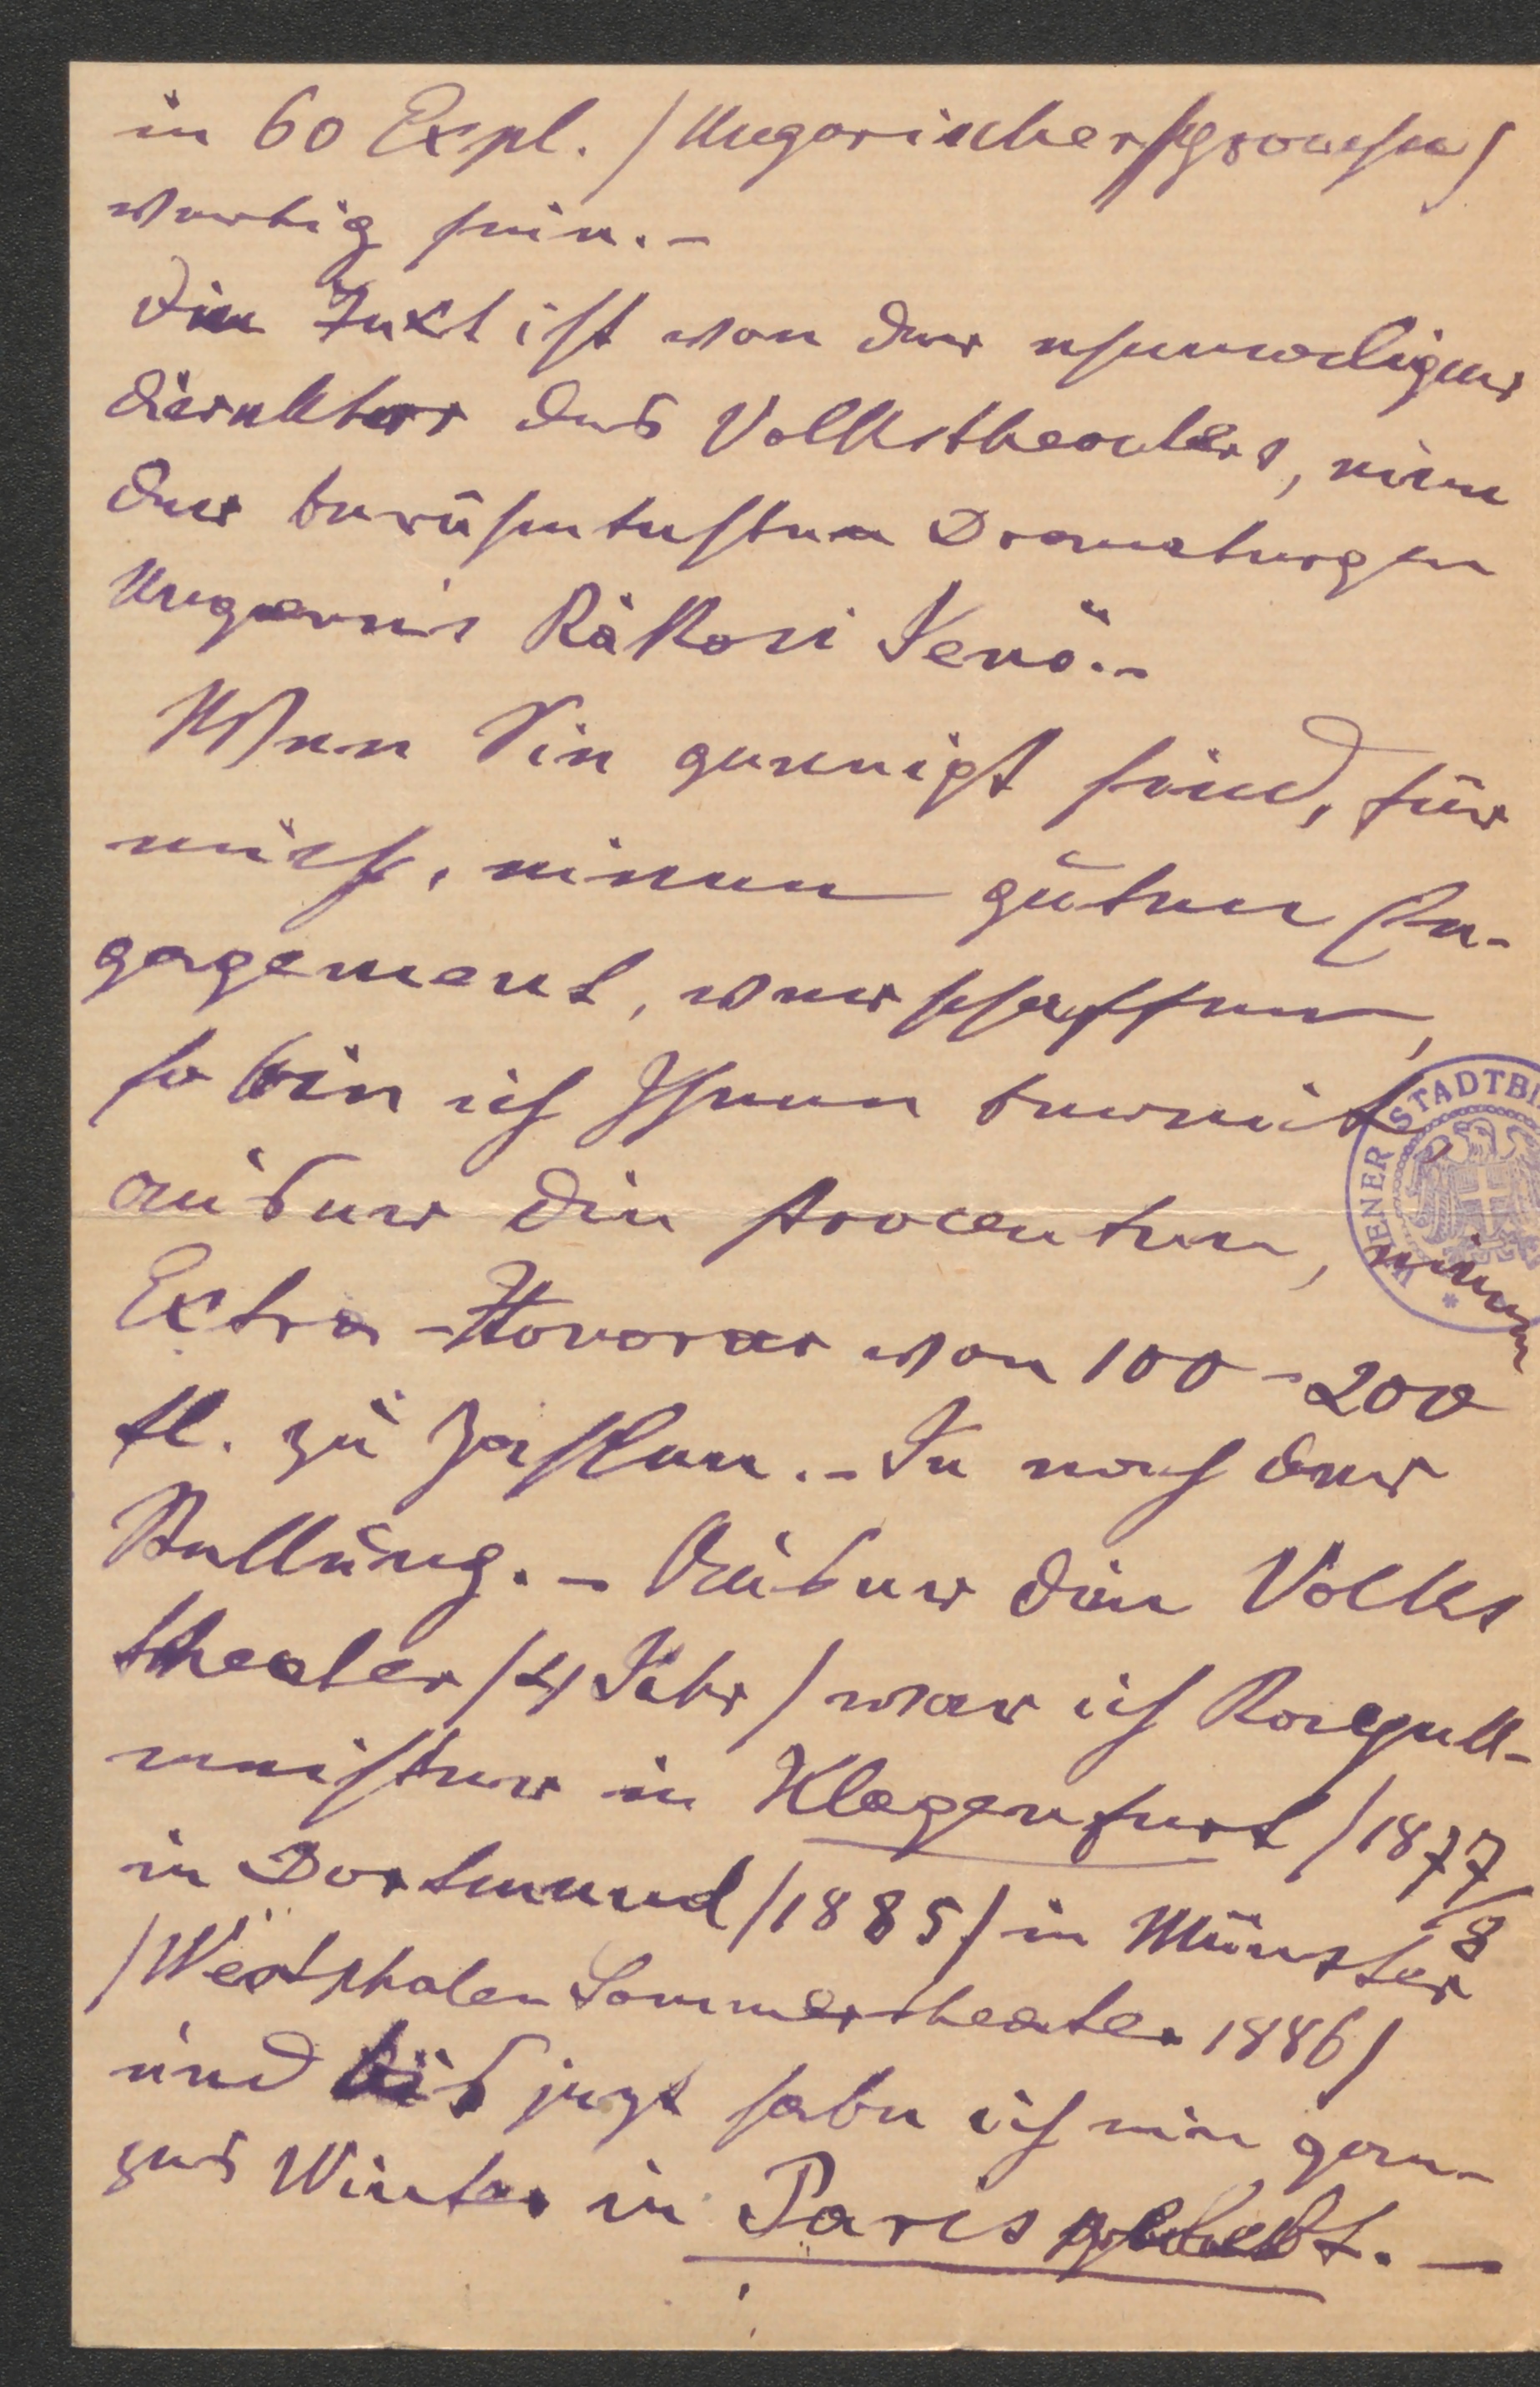 in 60 Expl. /Ungarischer Sprache/
vertig sein. –
Die Text ist von der ehemaliger
Direktor des Volkstheaters, eine
der berühmtesten Dramaturgen
Ungarn's Rákosi Jenö. –
Wenn Sie geneigt sind, für
mich, einen guten En-
gagement, verschaffen,
so bin ich Ihnen bereit,
außer die Procenten, einen
Extra-Honorar von 100–200
fl. zu zahlen. – Je nach der
Stellung. – Außer die Volks
theater /4 Jahr/ war ich Kapell-
meister in Klagenfurt /1877/8
in Dortmund /1885/ in Münster
/Westphalen Sommertheater 1886/
und bis jezt habe ich ein gan-
zes Winter in Paris gelebt. –
WIENER STADTBI